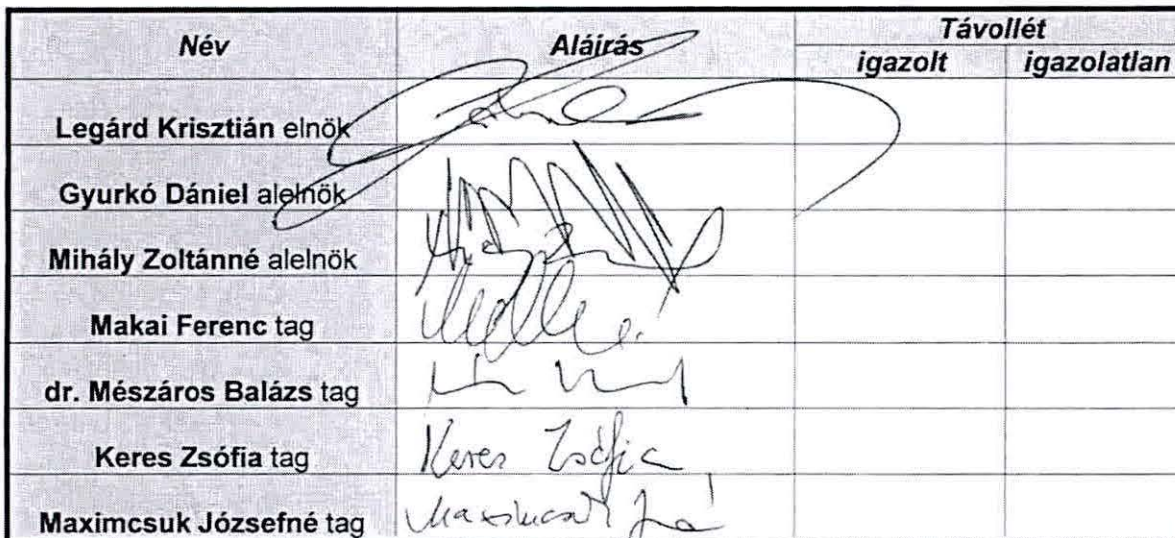 Név Aláírás Távollét
igazolt igazolatlan
Legárd Krisztián elnök
Gyurkó Dániel alelnök
Mihály Zoltánné alelnök
Makai Ferenc tag
dr. Mészáros Balázs tag
Keres Zsófia tag Keres Zsófia
Maximcsuk Józsefné tag Maximcsuk J-né